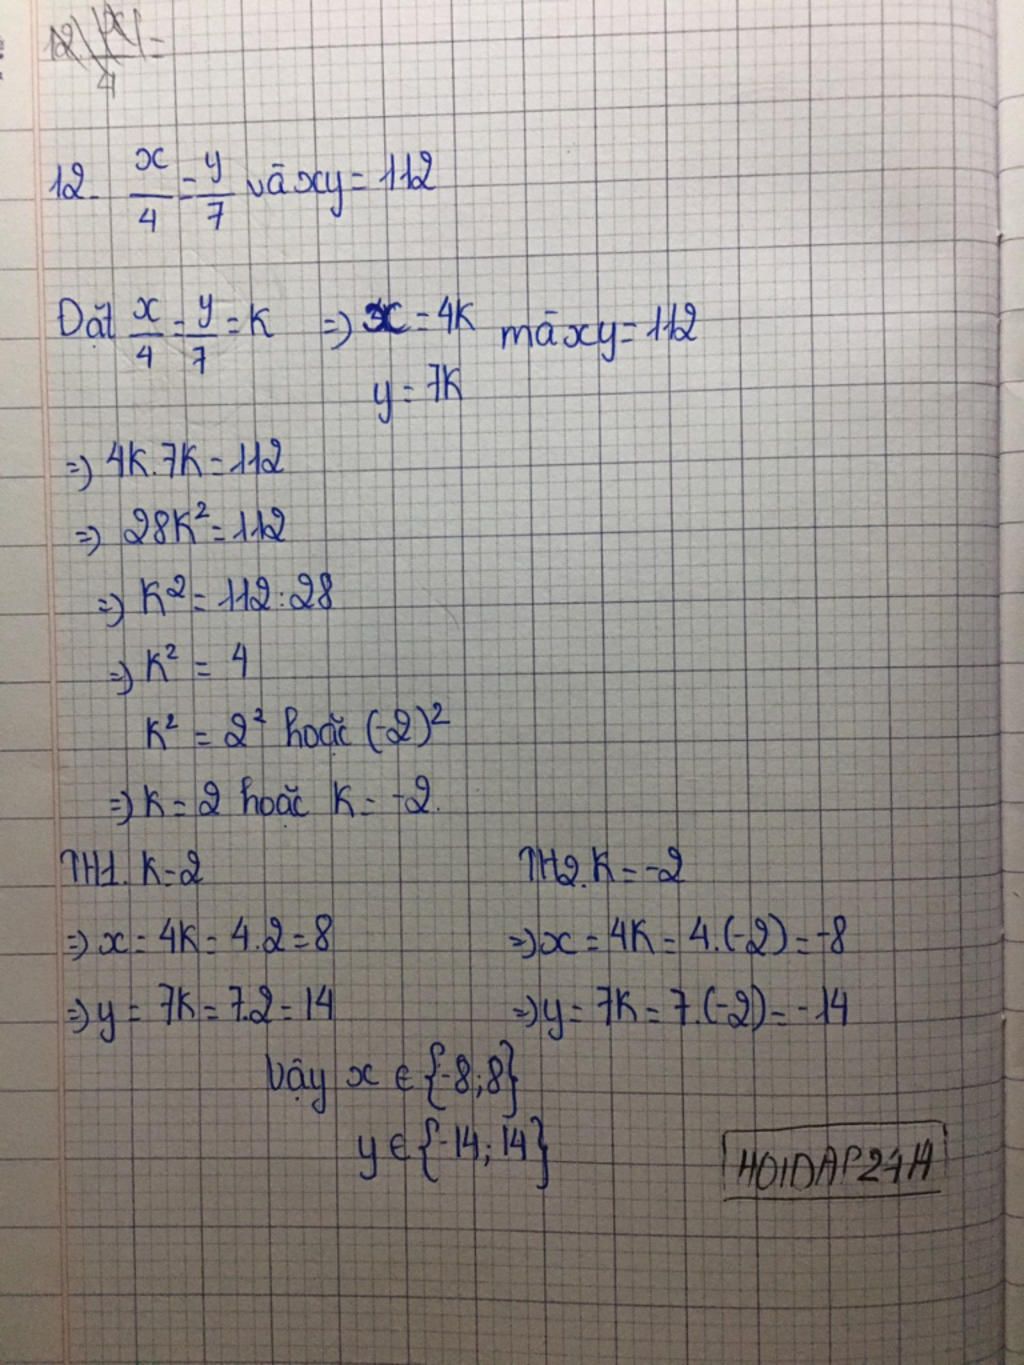 12. x/4 =
12. x/4 = y/7 và xy = 112
Đặt x/4 = y/7 = K => x = 4K mà xy = 112
y = 7K
=> 4K.7K = 112
=> 28K² = 112
=> K² = 112:28
=> K² = 4
K² = 2² hoặc (-2)²
=> K = 2 hoặc K = -2.
TH1. K = 2
TH2. K = -2
=> x = 4K = 4.2 = 8
=> x = 4K = 4.(-2) = -8
=> y = 7K = 7.2 = 14
=> y = 7K = 7.(-2) = -14
Vậy x ∈ {-8; 8}
y ∈ {-14; 14}
HOIDAP247H